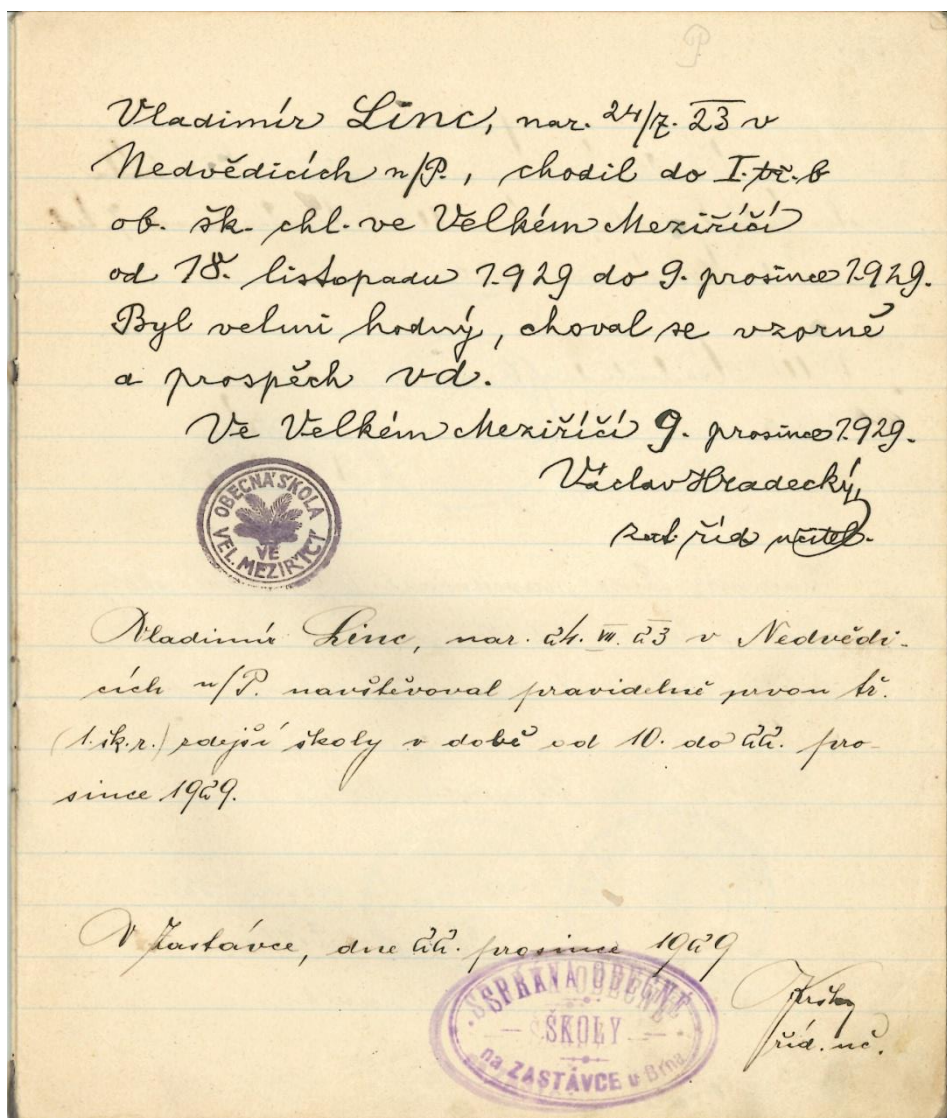 P.
Vladimír Linc, nar. 24/7. 23 v
Nedvědicích n/P., chodil do I. tř. b
ob. šk. chl. ve Velkém Meziříčí
od 18. listopadu 1929 do 9. prosince 1929.
Byl velmi hodný, choval se vzorně
a prospěch vd.
Ve Velkém Meziříčí 9. prosince 1929.
Václav Hradecký,
zat. říd. učitel.
OBECNÁ ŠKOLA
VE
VEL. MEZIŘÍČÍ
Vladimír Linc, nar. 24. VII. 23 v Nedvědi-
cích n/P. navštěvoval pravidelně prvou tř.
(1. šk. r.) zdejší školy v době od 10. do 22. pro-
since 1929.
V Zastávce, dne 22. prosince 1929
SPRÁVA OBECNÉ
ŠKOLY
na ZASTÁVCE u Brna
říd. uč.